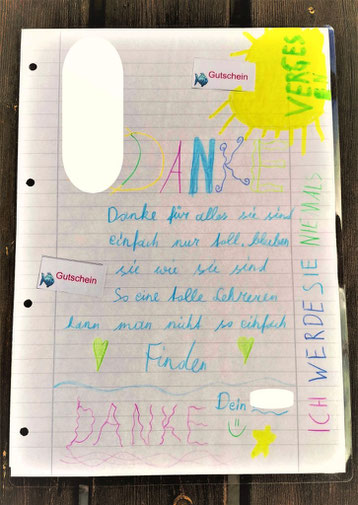 Gutschein
DANKE
Danke für alles sie sind
einfach nur toll, bleiben
sie wie sie sind
So eine tolle Lehrerin
kann man nicht so einfach
Finden
Gutschein
Dein
DANKE
ICH WERDE SIE NIEMALS
VERGES
EN